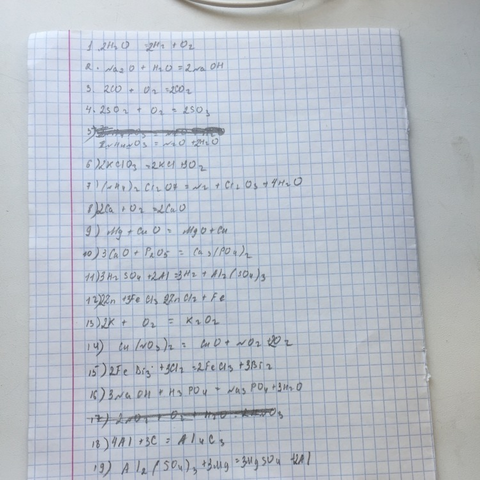 1. 2H2O 2H2 + O2
2. Na2O + H2O = 2NaOH
3. 2CO + O2 = 2CO2
4. 2SO2 + O2 = 2SO3
5)
NH4NO3 = N2O + 2H2O
6) 2KClO3 = 2KCl + 3O2
7) (NH4)2Cr2O7 = N2 + Cr2O3 + 4H2O
8) 2Ca + O2 = 2CaO
9.) Mg + CuO = MgO + Cu
10) 3CaO + P2O5 = Ca3(PO4)2
11) 3H2SO4 + 2Al = 3H2 + Al2(SO4)3
12) Zn + FeCl2 ZnCl2 + Fe
13) 2K + O2 = K2O2
14) Cu(NO3)2 = CuO + NO2 O2
15) 2FeBr3 + 3Cl2 = 2FeCl3 + 3Br2
16) 3NaOH + H3PO4 = Na3PO4 + 3H2O
17)
18) 4Al + 3C = Al4C3
19) Al2(SO4)3 + 3Mg = 3MgSO4 2Al